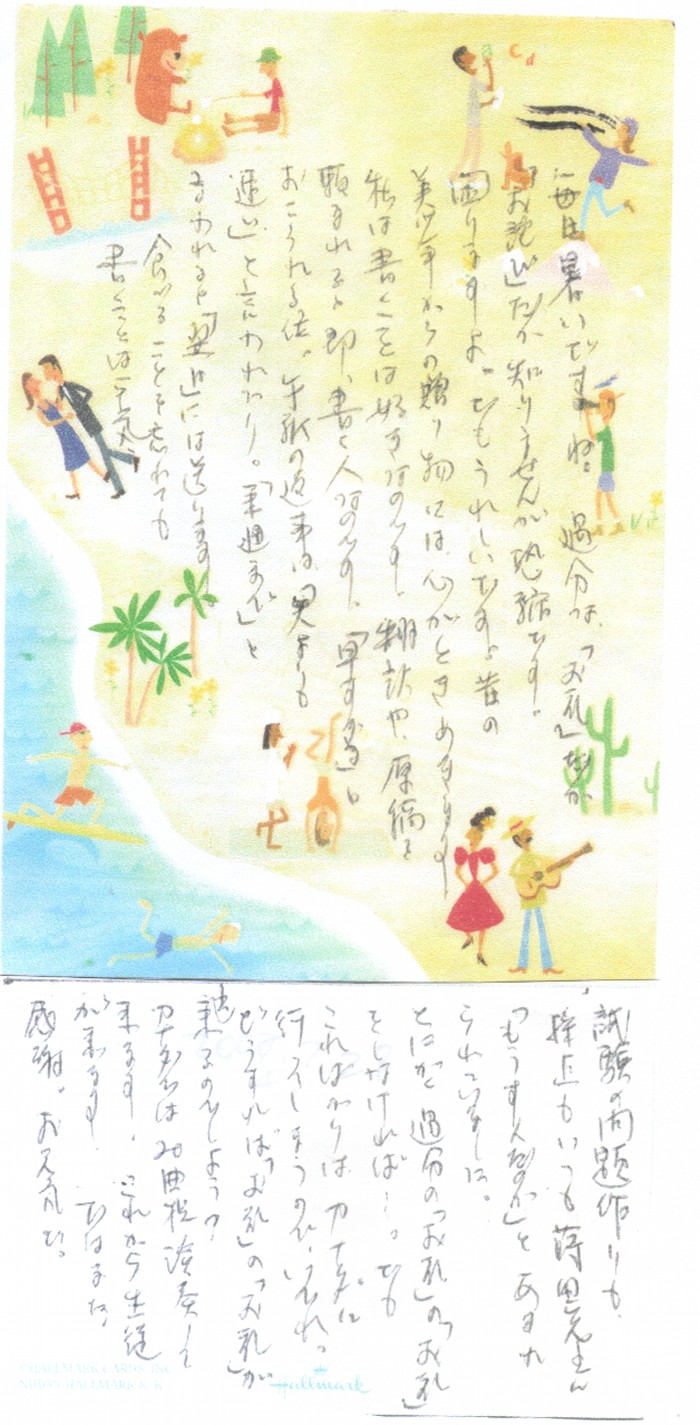 毎日暑いですね。過分な、「お礼」だか
「お詫び」だか知りませんが恐縮です。
困りますよ。でもうれしいですよ昔の
美少年からの贈り物には、心がときめきます
私は書くことは好きなのです。雑談や、原稿を
頼まれると即、書く人なのです。「早すぎる」と
おこられる位。手紙の返事は「光よりも
速い」と言われたり。「来週まで」と
言われると「翌日」には送ります。
食べることを忘れても
書くことは平気
試験の問題作りも、
採点もいつも蒔田先生
「もうすんだのか」とあきれ
られていました。
とにかく過分の「お礼」の「お礼」
をしなければ…。でも
こればかりは
行ってしまうので、いずれ。
どうすれば「お礼」の「お礼」が
出来るのでしょう？
は20曲程演奏し
ます。これから生徒
が来ます。ではまた
感謝。お元気で。
©HALLMARK CARDS, INC.
NIHON HALLMARK K.K.
Hallmark